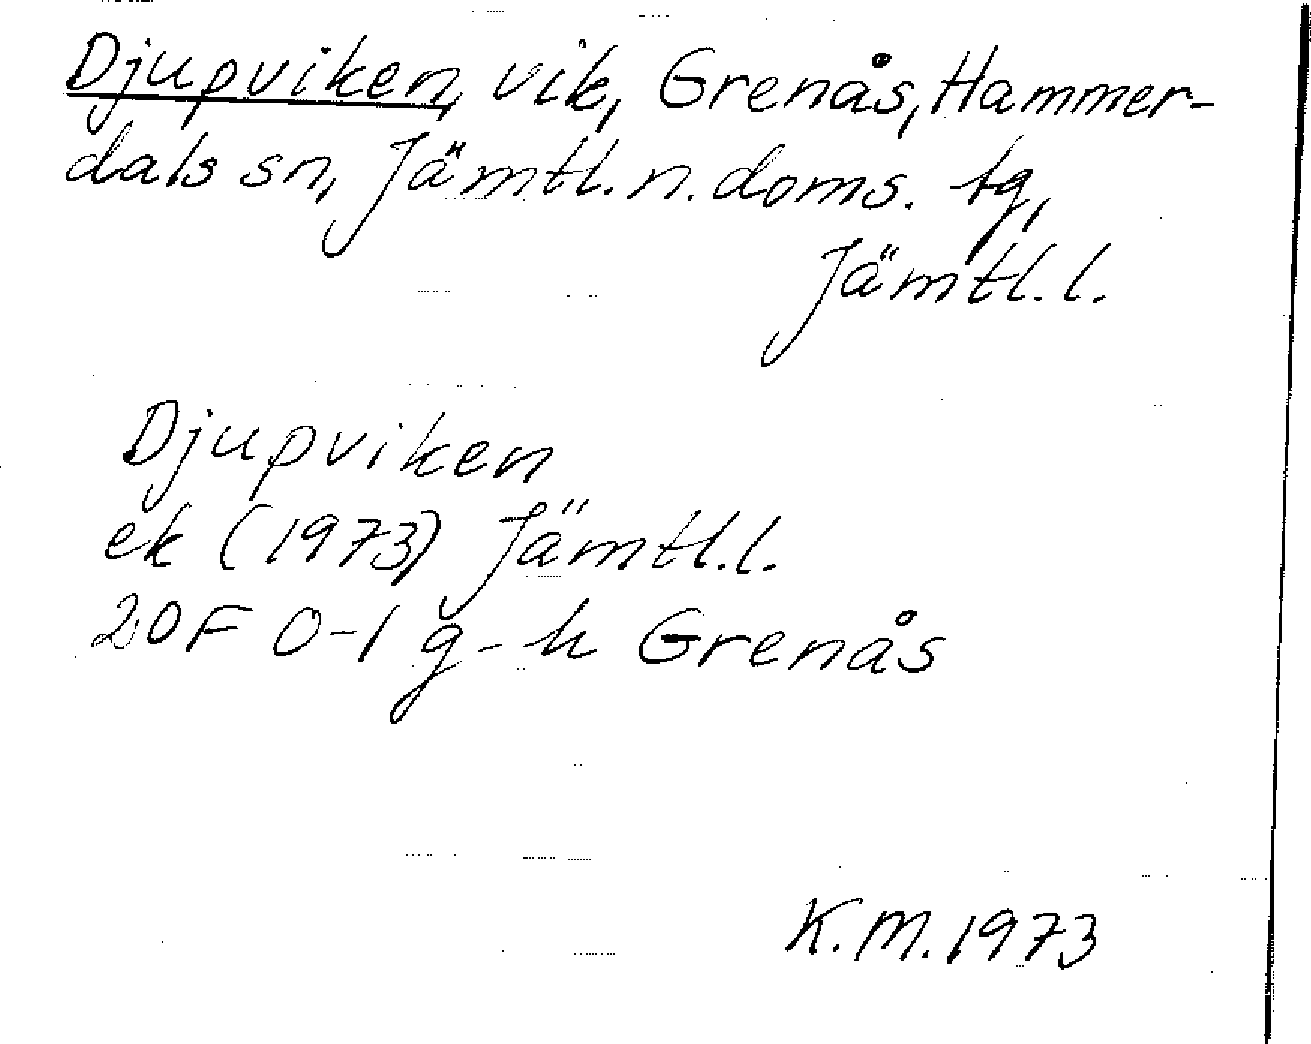 Djupviken, vik, Grenås, Hammer-
dals sn, Jämtl. n. doms. tg,
Jämtl. l.
Djupviken
ek (1973) Jämtl. l.
20F 0-1 g-h Grenås
K. M. 1973